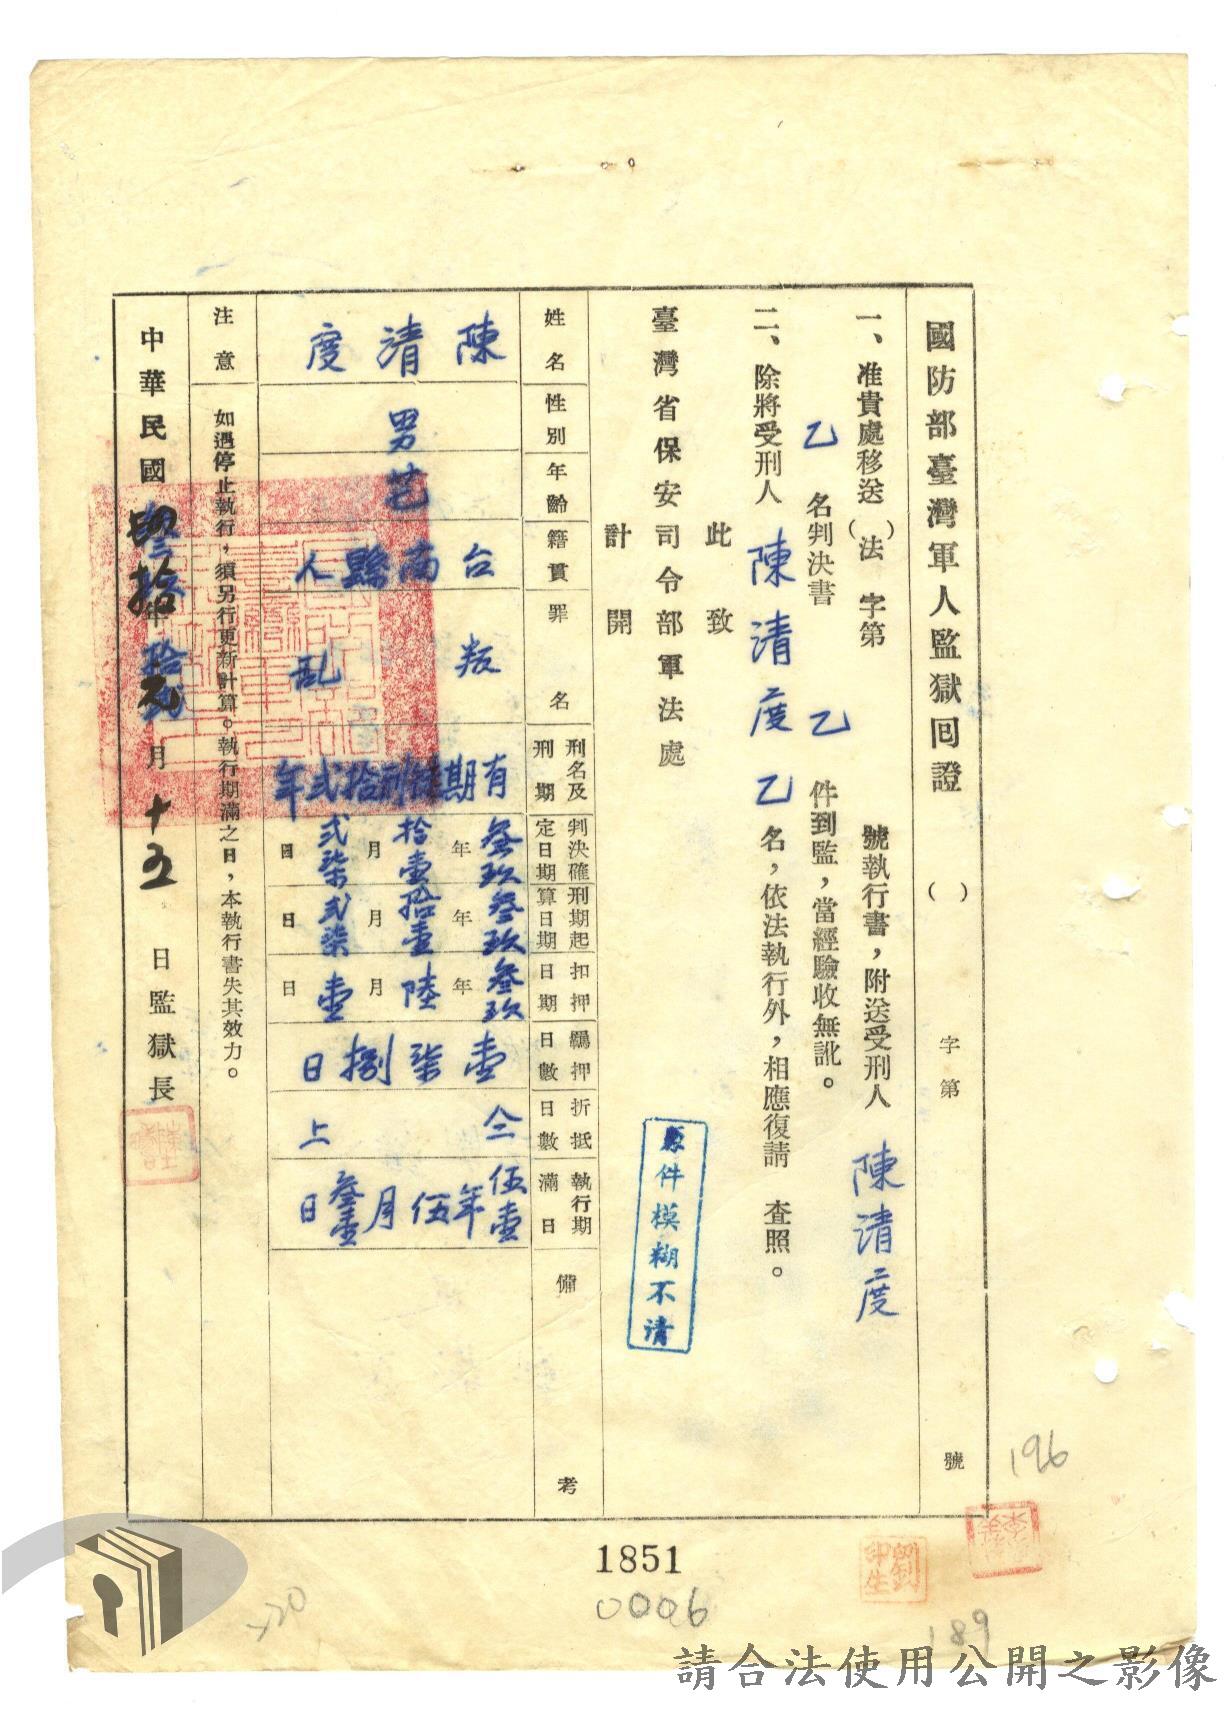 國防部臺灣軍人監獄回證 （ ） 字第 號
一、准貴處移送（ ）法 字第 號執行書，附送受刑人 陳清度
乙 名判決書 乙 件到監，當經驗收無訛。
二、除將受刑人 陳清度 乙 名，依法執行外，相應復請 查照。
此致
臺灣省保安司令部軍法處
計開
姓名 陳清度
性別 男
年齡
籍貫 台南縣人
罪名 叛乱
刑名及刑期 有期徒刑拾弍年
判決確定日期 叁玖年拾壹月弍柒日
刑期起算日期 叁玖年拾壹月弍柒日
扣押日期 叁玖年陸月壹日
羈押日數 壹柒捌日
折抵日數 仝上
執行期滿日 伍壹年伍月叁壹日
備考
注意 如遇停止執行，須另行更新計算。執行期滿之日，本執行書失其效力。
中華民國 四拾年 元月 十五 日監獄長
原件模糊不清
196
劉印生
1851
0006
189
請合法使用公開之影像